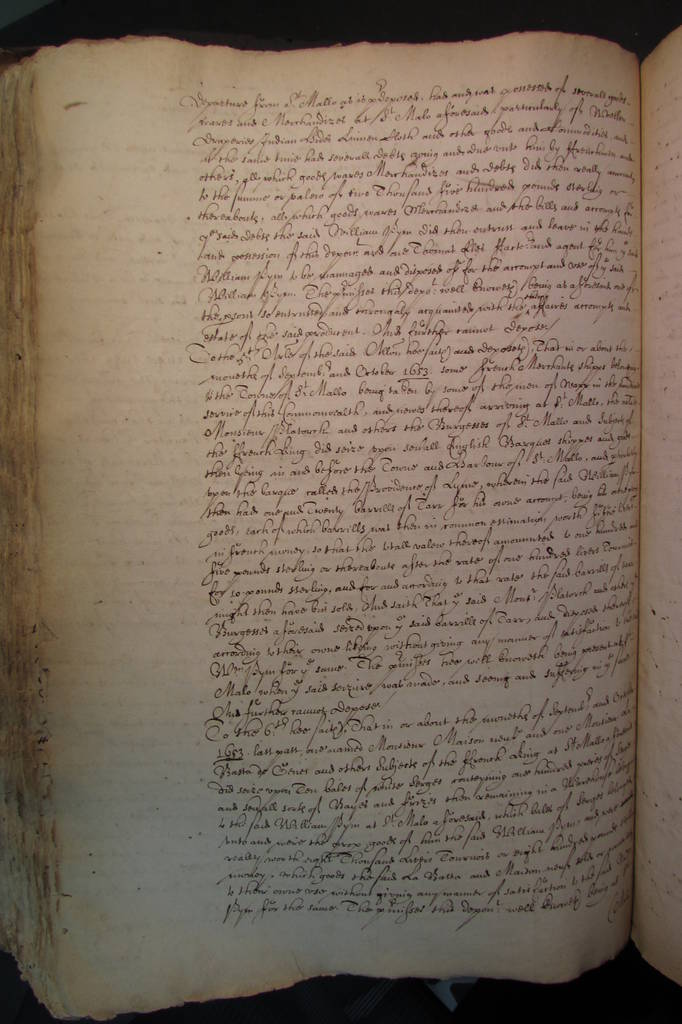 departure from St. Mallo as is p:deposed, had and was possessed of severall goods
wares and Merchandizes at St. Malo aforesaid particularly of Woollen
Draperies Indian hides Linnen Cloth and other goods and Commodities and
at the same time had severall debts oweing and due unto him by ffrenchmen and
others, all which goods wares Merchandizes and debts did then really amount
to the summe or valew of two Thousand five hundred pounds sterling or
thereabouts, all which goods, wares Merchandize and the bills and accompts for
ye said debts the said William Pym did then entrust and leave in the hands
and possession of this deponent and one Thomas ffactor and agent for him ye said
William Pym to be mannaged and disposed of for the accompt and use of ye said
William Pym. The p:misses this depot. well knoweth being as aforesaid one of
the persons so entrusted and throughly acquainted with the affaires accompts and
estate of the said producent. And further cannot depose.
To the 5th Arle of the said Allon hee saith and deposeth, That in or about the
moneths of Septembr. and October 1653. some ffrench Merchants shipps belonging
to the Towne of St. Mallo being taken by some of the men of warr in the imediate
service of this Commonwealth, and newes thereof arriving at St. Mallo, the
Monsieur Platorck and others the Burgesses of St. Mallo and subjects of
the ffrench King did seize upon sevrall English Barques shipps and goods
then lyeing in and before the Towne and Harbour of St. Mallo, and
upon the barque called the Providence of Lyme, wherein the said William Pym
then had one and Twenty barrills of Tarr for his owne accompt, being besides other
goods, each of which barrills was then in common estimation, worth
in french money, so that the totall valew thereof amounted to one hundred and
five pounds sterling or thereabouts after the rate of one hundred livers Tournois
for 10 pounds sterling, and for and according to that rate the said barrills of tarr
might then have bin sold. And saith That ye said Monsr. Platorck and others ye
Burgesses aforesaid seized upon ye said barrills of Tarr, and disposed thereof
according to their owne likeing without giving any manner of satisfaction to the said
Wm. Pym for ye same. The p:misses hee well knoweth being present at St.
Malo when ye said seizure was made, and seeing and suffering in ye same
And further cannot depose.
To the 6th. hee saith, That in or about the moneths of Septembr. and October
1653. last past, one named Monsieur Maison neufe and one Monsieur La
Basta de Genes and others subjects of the ffrench King at St. Mallo aforesaid
did seize upon Ten bales of white Serges conteyning one hundred peeces of Serges
and sevrall sorts of Bayes and furzes then remaining in a Warehouse belonging
to the said William Pym at St. Malo aforesaid, which bales of Serges belonged
unto and were the prop. goods of him the said William Pym, and were
really worth eight Thousand Livers Tournois or eight hundred pounds sterling
money, which goods the said La Basta and Maison neufe sold or
to their owne use without giving any manner of satisfaction to the said William
Pym for the same. The p:misses this depont. well knoweth being at